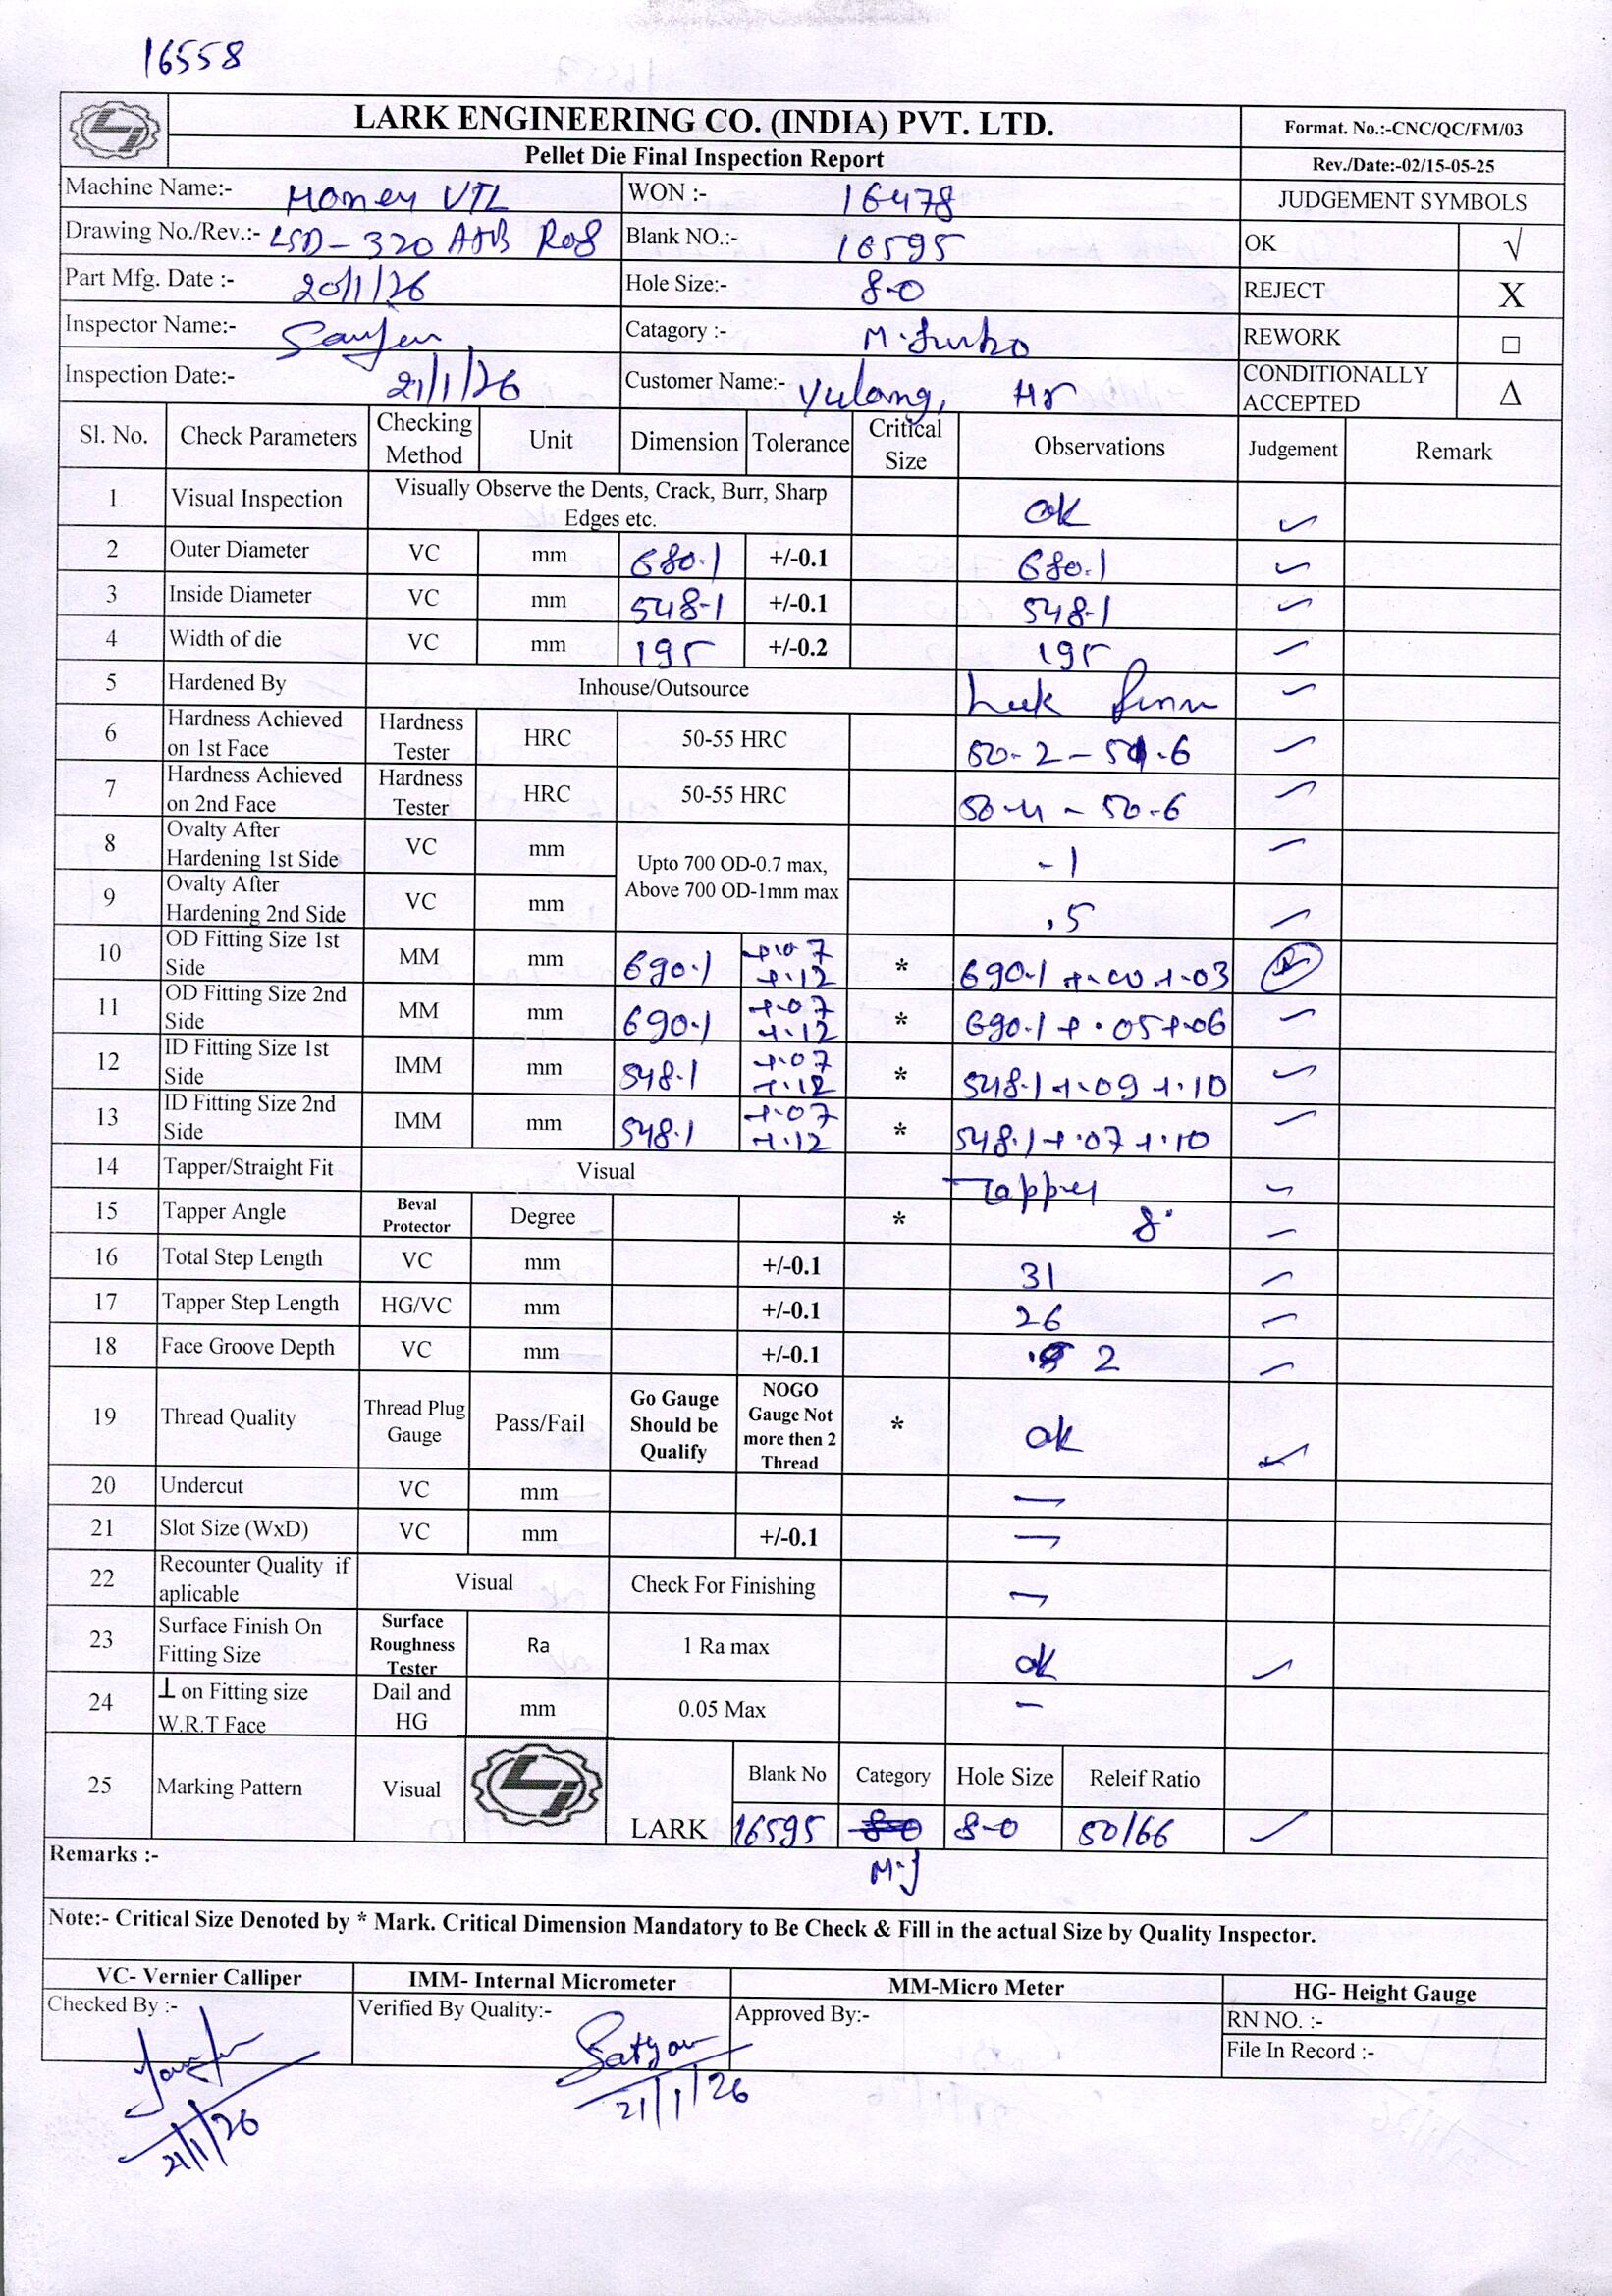 16558
LARK ENGINEERING CO. (INDIA) PVT. LTD.
Format. No.:-CNC/QC/FM/03
Pellet Die Final Inspection Report
Rev./Date:-02/15-05-25
Machine Name:- Honey VTL WON :- 16478 JUDGEMENT SYMBOLS
Drawing No./Rev.:- LSD-320 AAB R08 Blank NO.:- 16595 OK √
Part Mfg. Date :- 20/1/26 Hole Size:- 8-0 REJECT X
Inspector Name:- Catagory :- M. REWORK □
Inspection Date:- 21/1/26 Customer Name:- Yulong, Hr CONDITIONALLY ACCEPTED Δ
Sl. No. Check Parameters Checking Method Unit Dimension Tolerance Critical Size Observations Judgement Remark
1 Visual Inspection Visually Observe the Dents, Crack, Burr, Sharp Edges etc. ok ✓
2 Outer Diameter VC mm 680.1 +/-0.1 680.1 ✓
3 Inside Diameter VC mm 548-1 +/-0.1 548-1 ✓
4 Width of die VC mm 195 +/-0.2 195 ✓
5 Hardened By Inhouse/Outsource ✓
6 Hardness Achieved on 1st Face Hardness Tester HRC 50-55 HRC 50-2-51.6 ✓
7 Hardness Achieved on 2nd Face Hardness Tester HRC 50-55 HRC 50-4 - 50-6 ✓
8 Ovalty After Hardening 1st Side VC mm Upto 700 OD-0.7 max, Above 700 OD-1mm max -1 ✓
9 Ovalty After Hardening 2nd Side VC mm .5 ✓
10 OD Fitting Size 1st Side MM mm 690.1 +.07 +.12 * 690.1 +.00 +.03
11 OD Fitting Size 2nd Side MM mm 690.1 +.07 +.12 * 690.1 +.05 +.06 ✓
12 ID Fitting Size 1st Side IMM mm 548.1 +.07 +.12 * 548.1 +.09 +.10 ✓
13 ID Fitting Size 2nd Side IMM mm 548.1 +.07 +.12 * 548.1 +.07 +.10 ✓
14 Tapper/Straight Fit Visual Tapper ✓
15 Tapper Angle Beval Protector Degree * 8° ✓
16 Total Step Length VC mm +/-0.1 31 ✓
17 Tapper Step Length HG/VC mm +/-0.1 26 ✓
18 Face Groove Depth VC mm +/-0.1 2 ✓
19 Thread Quality Thread Plug Gauge Pass/Fail Go Gauge Should be Qualify NOGO Gauge Not more then 2 Thread * ok ✓
20 Undercut VC mm —
21 Slot Size (WxD) VC mm +/-0.1 —
22 Recounter Quality if aplicable Visual Check For Finishing —
23 Surface Finish On Fitting Size Surface Roughness Tester Ra 1 Ra max ok ✓
24 ⊥ on Fitting size W.R.T Face Dail and HG mm 0.05 Max —
25 Marking Pattern Visual LARK Blank No Category Hole Size Releif Ratio
16595 80 8-0 50/66 ✓
M.J
Remarks :-
Note:- Critical Size Denoted by * Mark. Critical Dimension Mandatory to Be Check & Fill in the actual Size by Quality Inspector.
VC- Vernier Calliper IMM- Internal Micrometer MM-Micro Meter HG- Height Gauge
Checked By :- Verified By Quality:- Approved By:- RN NO. :-
File In Record :-
Satyan
21/1/26
21/1/26